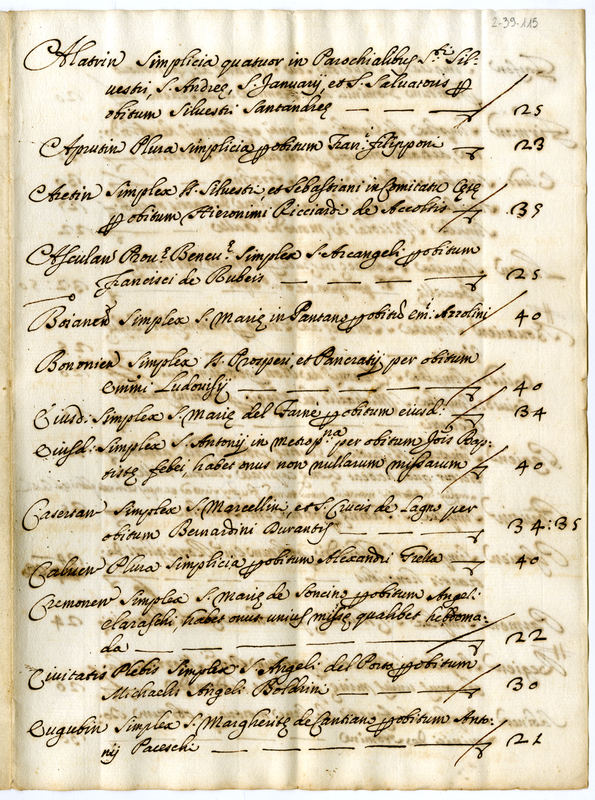 2-39-115
Alatrin Simplicia quatuor in Parochialibus S.ti Sil-
vestri, S. Andreę, S. Januarij, et S. Salvatoris p
obitum Silvestri Santandreę 25
Aprutin Plura Simplicia p obitum Fran.i Filipponi 23
Aretin Simplex SS. Silvestri, et Sebastiani in Comitatu
p obitum Hieronimi Ricciardi de Accoltis 35
Asculan Simplex S. Arcangeli p obitum
Francisci de Rubeis 25
Boianen Simplex S. Marię in Pantano p obitũ Em.i Azzolini 40
Bononien Simplex SS. Prosperi, et Pancratij per obitum
Emmi Ludovisij 40
Eiusd: Simplex S. Marię del p obitum eiusd: 34
Eiusd: Simplex S. Antonij in metrop.na per obitum Jois Bap-
tistę Febei, habet onus non nullarum missarum 40
Casertan Simplex S. Marcellini, et S. Crucis de Lagno per
obitum Bernardini Durantis 34:35
Plura Simplicia p obitum Alexandri 40
Cremonen Simplex S. Marię de Soncino p obitum Angeli
habet onus unius missę qualibet hebdoma-
da 22
Civitatis Plebis Simplex S. Angeli del Porto p obitum
Michaelis Angeli Boldrin 30
Eugubin Simplex S. Margheritę de Cantiano p obitum Anto-
nij Paceschi 21